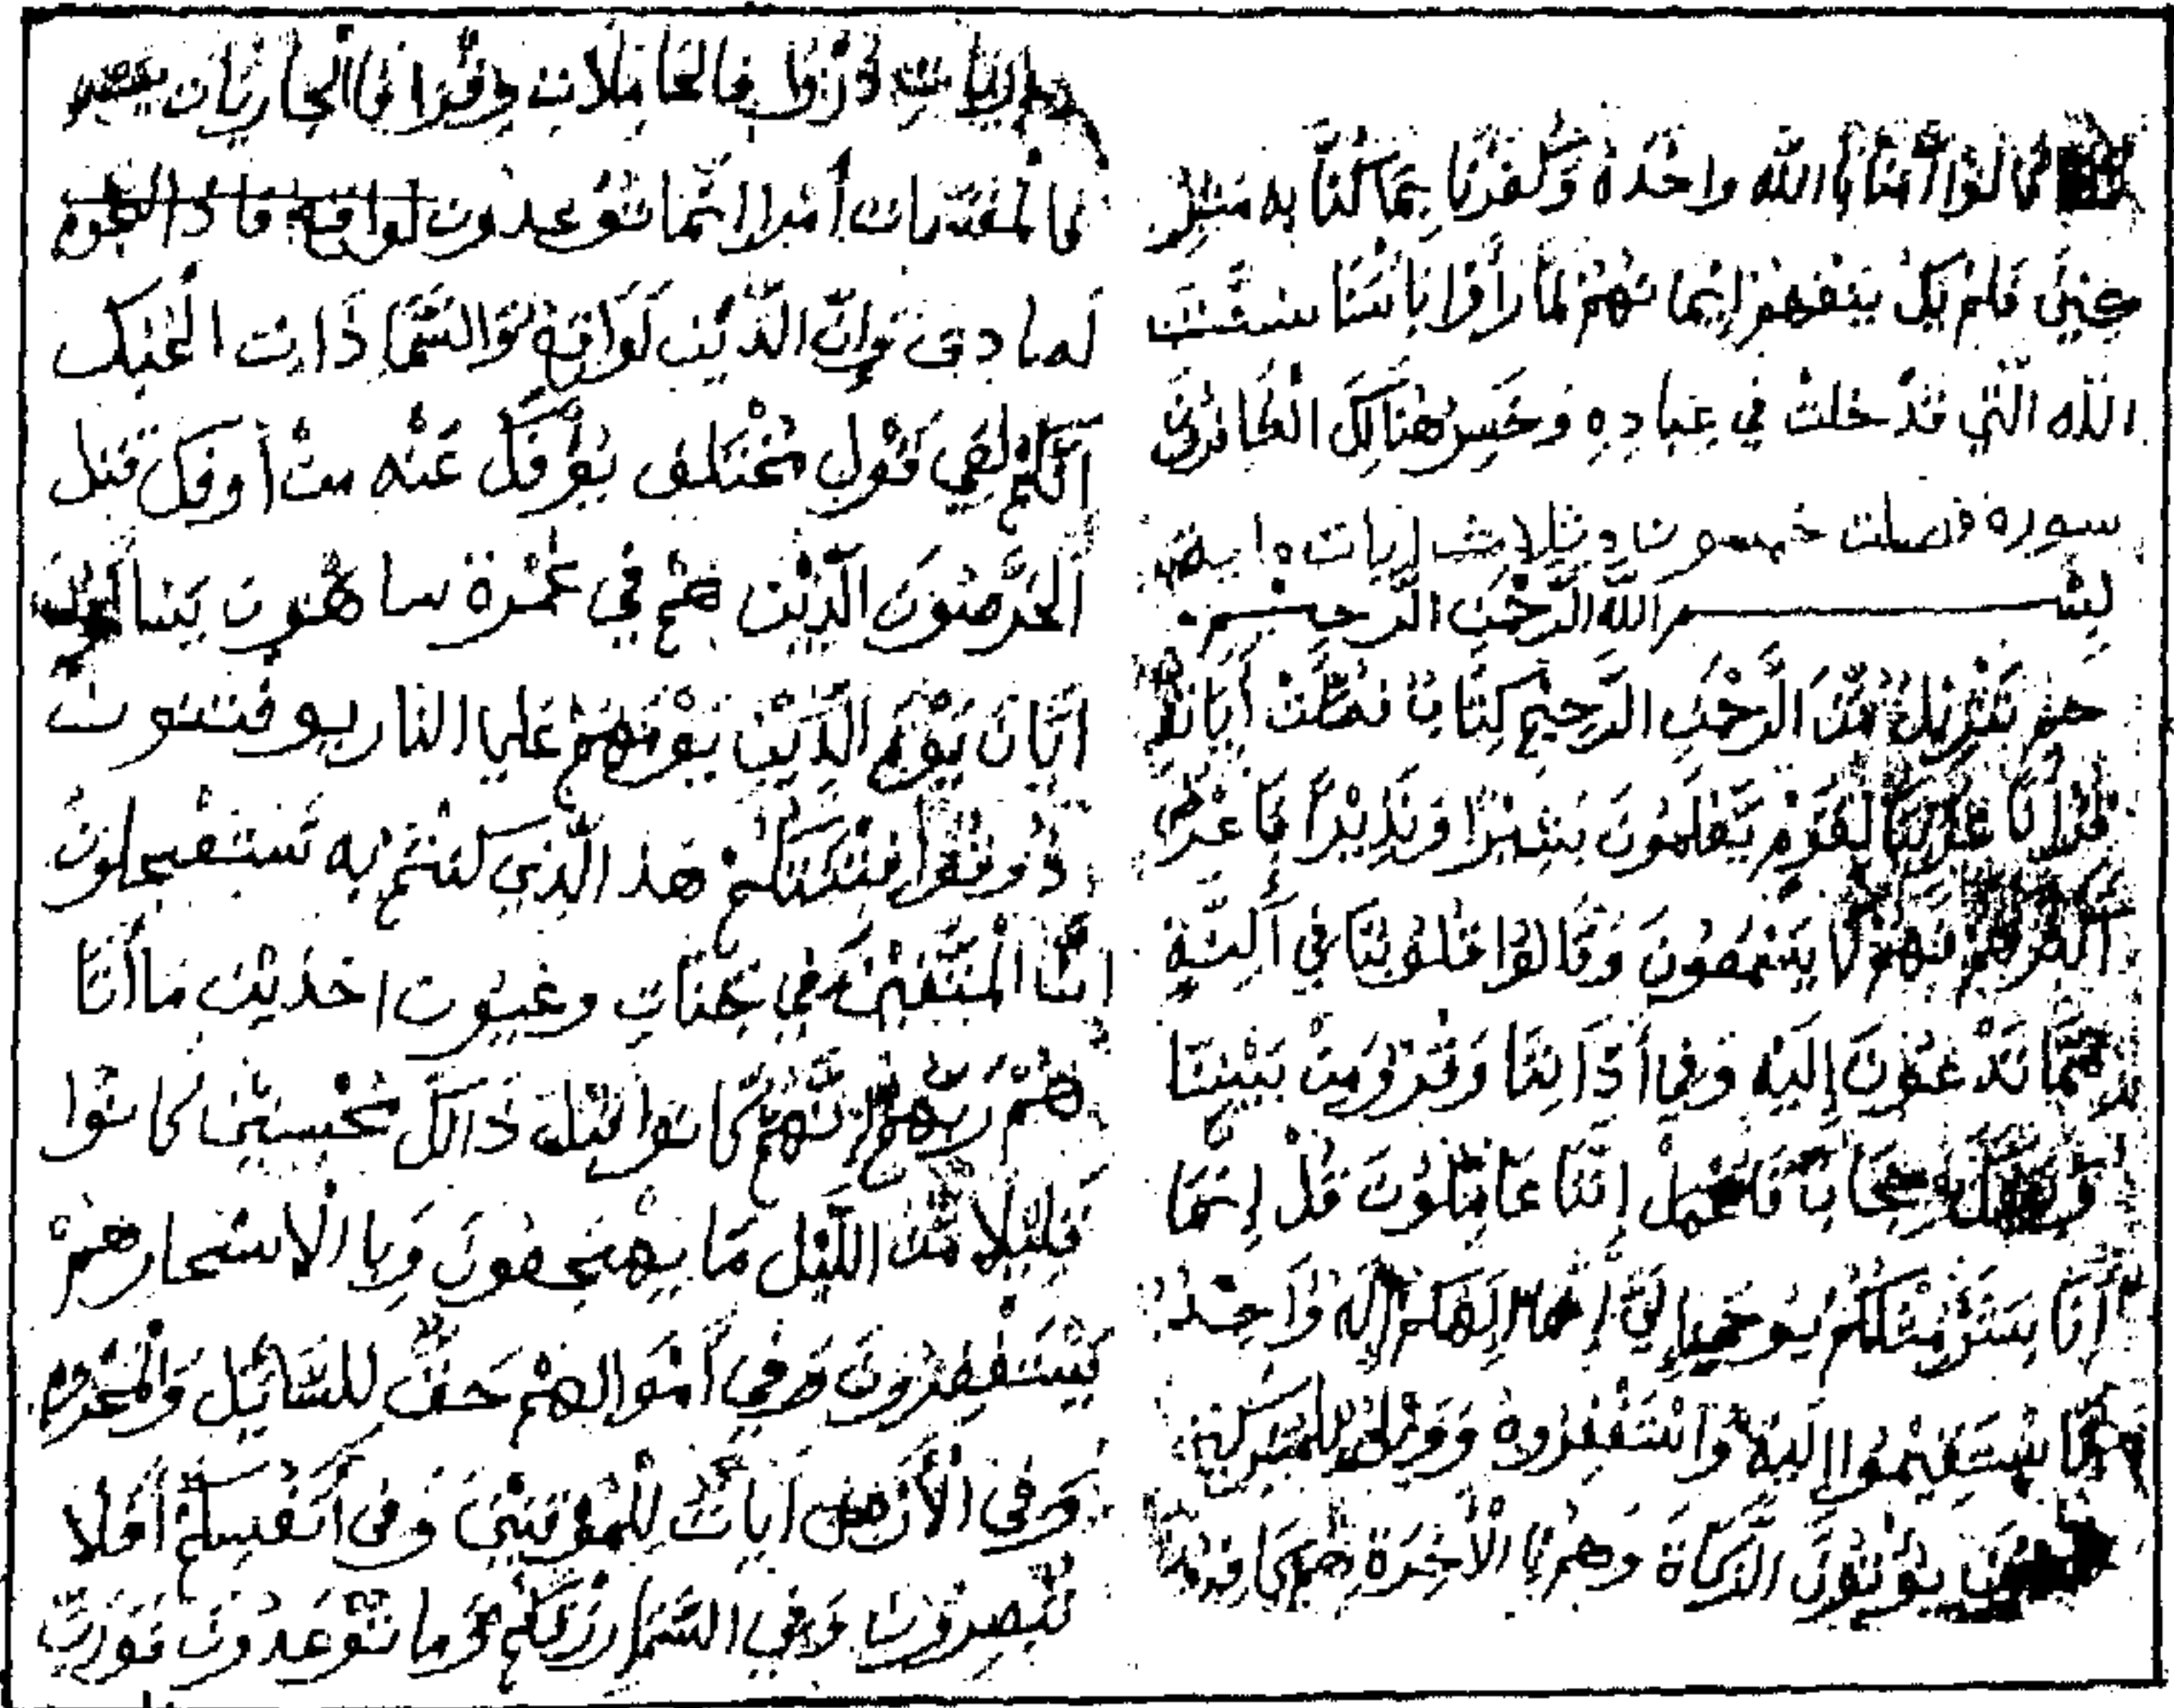 قالوا آمنا بالله واحده وكفرنا بما كنا به مشر
كين فلم يك ينفعهم إيما نهم لما رأوا بأسنا سنت
الله التي قد خلت في عباده وخسر هنالك الكافرون
سورة فصلت خمسون وثلاث ايات وايضا
بسم الله الرحمن الرحيم
حم تنزيل من الرحمن الرحيم كتاب فصلت آياته
قرأنا عربيا لقوم يعلمون بشيرا ونذيرا فاعرض
اكثرهم فهم لا يسمعون وقالوا قلوبنا في أكنة
مما تدعون إليه وفي أذاننا وقر ومن بيننا
وبينك حجابا فاعمل إننا عاملون قل إنما
أنا بشر مثلكم يوحيا إلي إنما إلهكم إله واحد
فا ستقيموا إليه واستغفروه وويل للمشركين
يؤتون الزكاة وهم با الأخرة هم كافرون
والذاريات ذروا فالحاملات وقرا فا الجاريات يسرا
فا لمقسمات أمرا انما توعدون لواقع فاذا النجوم
لصادق وإن الدين لواقع والسما ذات الحبك
انكم لفي قول مختلف يؤفك عنه من أوفك قتل
الخرصون الذين هم في غمرة ساهون يسألون
ايان يوم الدين يوم هم علي النار يوفتنون
ذوقوا فتنتكم هذ الذي كنتم به تستعجلون
إن المتقين في جنات وعيون اخذين ما أتا
هم ربهم إنهم كانوا قبل ذالك محسنين كانوا
قليلا من الليل ما يهجعون وبا الأسحار هم
يستغفرون وفي أموالهم حق للسائل والمحروم
وفي الأرض آيات للموقنين وفي أنفسكم أفلا
تبصرون وفي السما رزقكم وما توعدون فورب